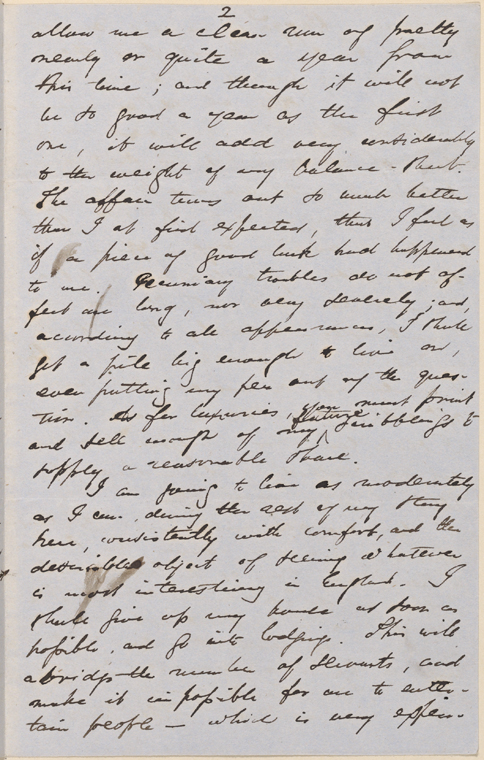 2
allow me a clear run of pretty
nearly or quite a year from
this time; and though it will not
be so good a year as the first
one, it will add very considerably
to the weight of my balance-sheet.
The affair turns out so much better
than I at first expected, that I feel as
if a piece of good luck had happened
to me. Pecuniary troubles do not af-
fect me long, nor very severely; and,
according to all appearances, I shall
get a pile big enough to live on,
even putting my pen out of the ques-
tion. As for luxuries, you must print
and sell enough of my future scribblings to
supply a reasonable share.
I am going to live as moderately
as I can, during the rest of my stay
here, consistently with comfort, and the
desirable object of seeing whatever
is most interesting in England. I
shall give up my house as soon as
possible, and go into lodgings. This will
abridge the number of servants, and
make it impossible for me to enter-
tain people — which is very expen-